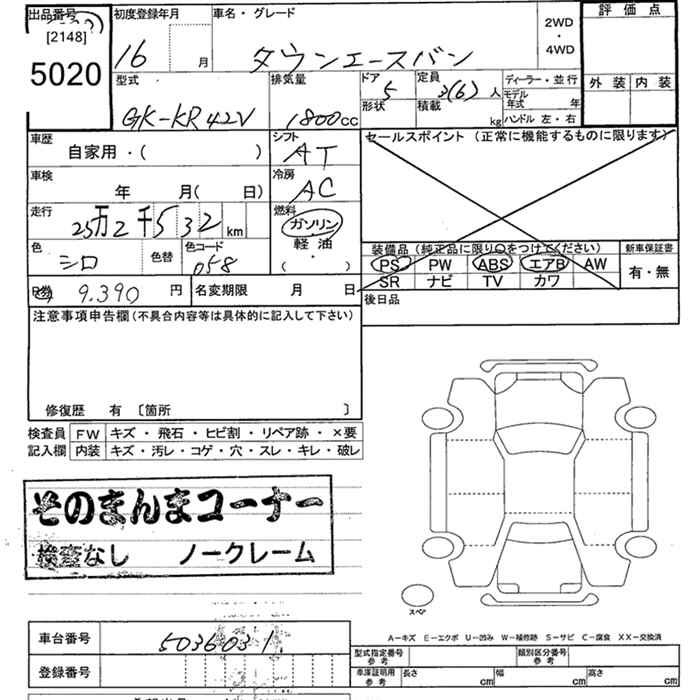 出品番号 初度登録年月 車名・グレード 2WD ・ 4WD 評価点
[2148]
5020 16 月 タウンエースバン
外装 内装
型式 排気量 ドア 定員 ディーラー・並行
GK-KR42V 1800cc 5 3(6)人 モデル年式 年
形状 積載 kg ハンドル 左・右
車歴 シフト セールスポイント (正常に機能するものに限ります)
自家用・( ) AT
車検 冷房
年 月( 日) AC
走行 燃料
25万2千532km ガソリン
軽油
・
( )
色 色替 色コード
シロ 058
装備品(純正品に限り○をつけてください) 新車保証書
PS PW ABS エアB AW 有・無
SR ナビ TV カワ
R券 9.390円 名変期限 月 日 後日品
注意事項申告欄(不具合内容等は具体的に記入して下さい)
修復歴 有 〔箇所 〕
検査員 FW キズ・飛石・ヒビ割・リペア跡・×要
記入欄 内装 キズ・汚レ・コゲ・穴・スレ・キレ・破レ
そのまんまコーナー
検査なし ノークレーム
スペア
A−キズ E−エクボ U−凹み W−補修跡 S−サビ C−腐食 XX−交換済
車台番号 5036031
型式指定番号 参考 類別区分番号 参考
登録番号 車庫証明用 参考 長さ cm 幅 cm 高さ cm